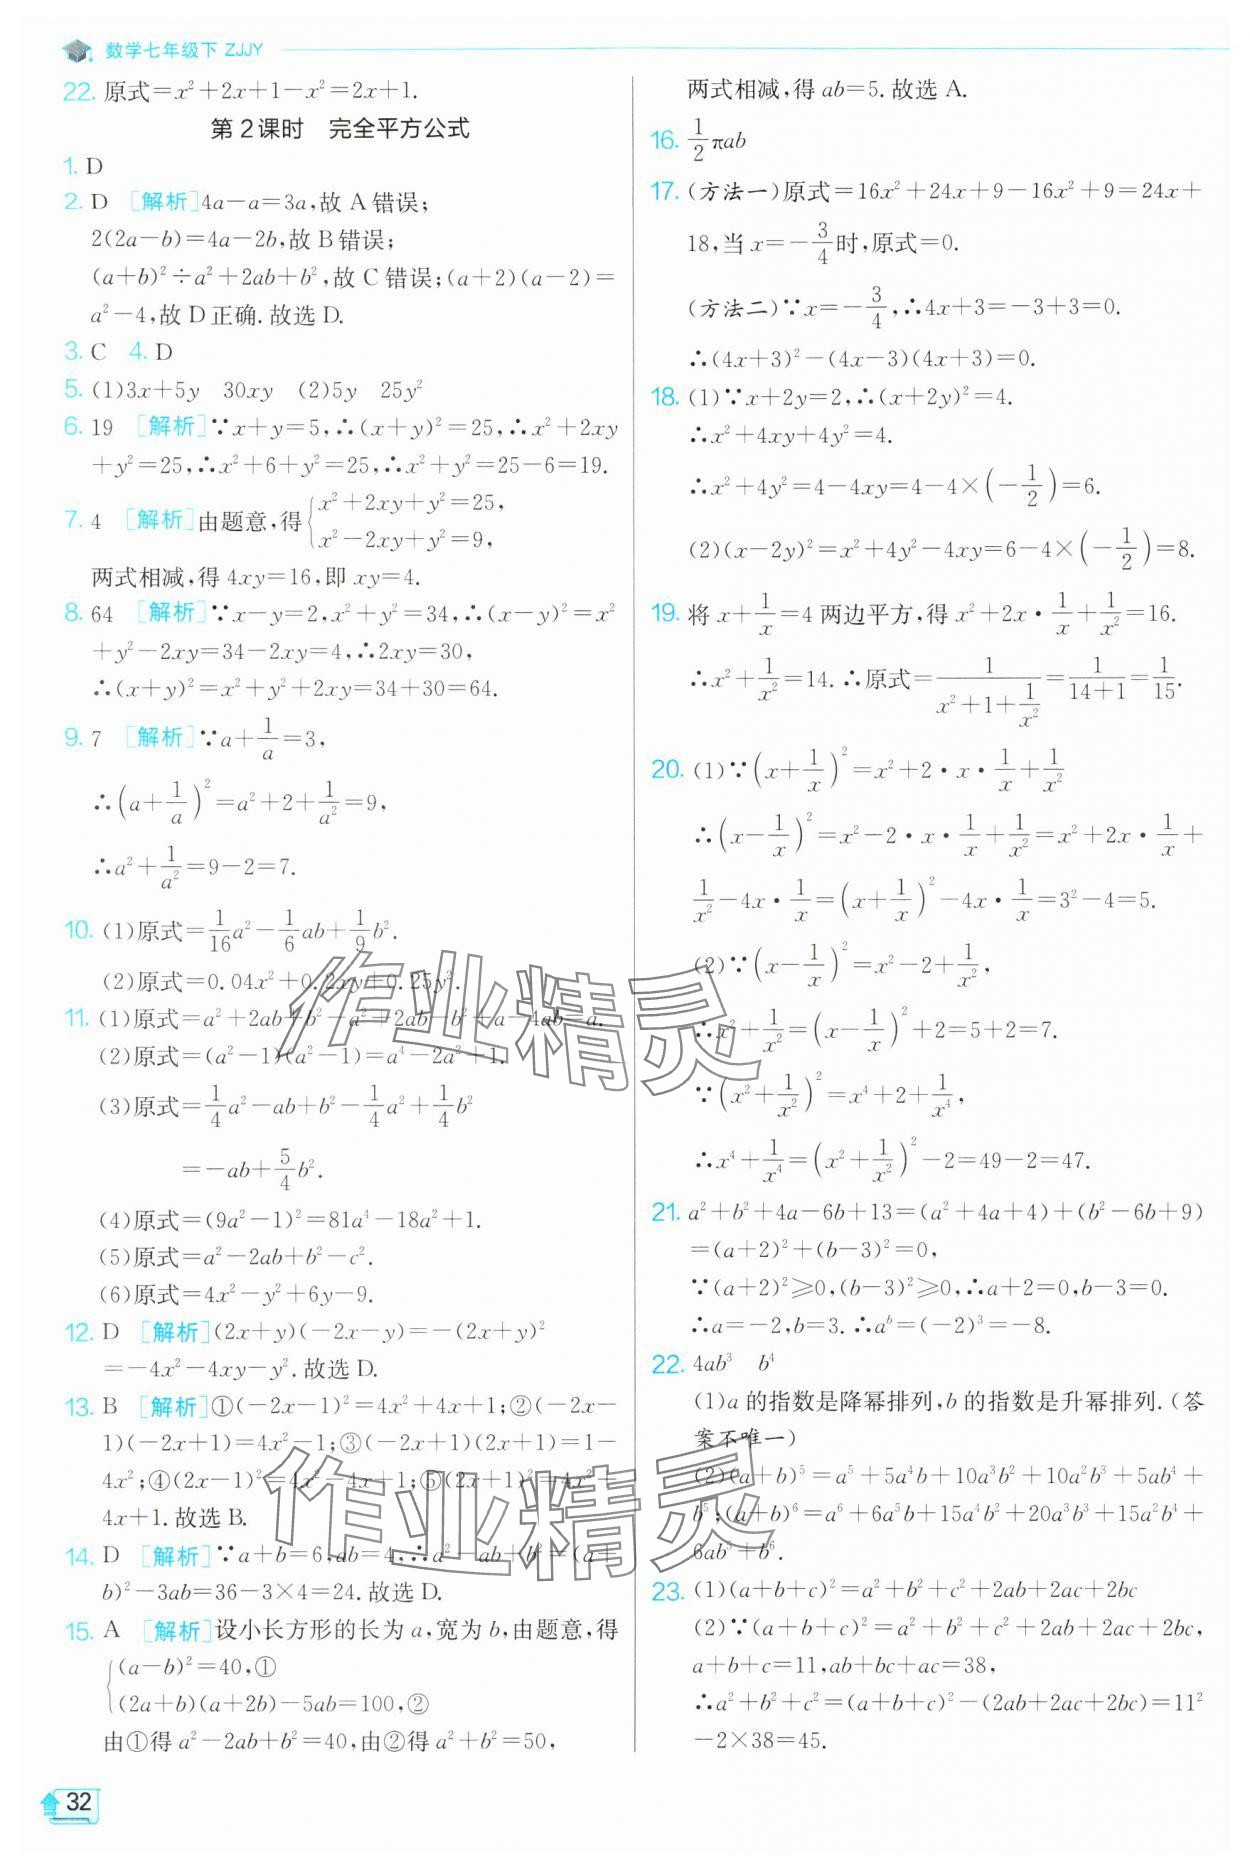 数学七年级下 ZJJY
22. 原式=x²+2x+1-x²=2x+1.
第2课时 完全平方公式
1. D
2. D [解析]4a-a=3a,故A错误;
2(2a-b)=4a-2b,故B错误;
(a+b)²÷a²+2ab+b²,故C错误;(a+2)(a-2)=
a²-4,故D正确.故选D.
3. C 4. D
5. (1)3x+5y 30xy (2)5y 25y²
6. 19 [解析]∵x+y=5,∴(x+y)²=25,∴x²+2xy
+y²=25,∴x²+6+y²=25,∴x²+y²=25-6=19.
7. 4 [解析]由题意,得{x²+2xy+y²=25,
x²-2xy+y²=9,
两式相减,得4xy=16,即xy=4.
8. 64 [解析]∵x-y=2,x²+y²=34,∴(x-y)²=x²
+y²-2xy=34-2xy=4,∴2xy=30,
∴(x+y)²=x²+y²+2xy=34+30=64.
9. 7 [解析]∵a+1/a=3,
∴(a+1/a)²=a²+2+1/a²=9,
∴a²+1/a²=9-2=7.
10. (1)原式=1/16a²-1/6ab+1/9b².
(2)原式=0.04x²+0.2xy+0.25y².
11. (1)原式=a²+2ab+b²-a²+2ab-b²+a-4ab=a.
(2)原式=(a²-1)(a²-1)=a⁴-2a²+1.
(3)原式=1/4a²-ab+b²-1/4a²+1/4b²
=-ab+5/4b².
(4)原式=(9a²-1)²=81a⁴-18a²+1.
(5)原式=a²-2ab+b²-c².
(6)原式=4x²-y²+6y-9.
12. D [解析](2x+y)(-2x-y)=-(2x+y)²
=-4x²-4xy-y².故选D.
13. B [解析]①(-2x-1)²=4x²+4x+1;②(-2x-
1)(-2x+1)=4x²-1;③(-2x+1)(2x+1)=1-
4x²;④(2x-1)²=4x²-4x+1;⑤(2x+1)²=4x²+
4x+1.故选B.
14. D [解析]∵a+b=6,ab=4,∴a²-ab+b²=(a+
b)²-3ab=36-3×4=24.故选D.
15. A [解析]设小长方形的长为a,宽为b,由题意,得
{(a-b)²=40,①
(2a+b)(a+2b)-5ab=100,②
由①得a²-2ab+b²=40,由②得a²+b²=50,
两式相减,得ab=5.故选A.
16. 1/2πab
17. (方法一)原式=16x²+24x+9-16x²+9=24x+
18,当x=-3/4时,原式=0.
(方法二)∵x=-3/4,∴4x+3=-3+3=0.
∴(4x+3)²-(4x-3)(4x+3)=0.
18. (1)∵x+2y=2,∴(x+2y)²=4.
∴x²+4xy+4y²=4.
∴x²+4y²=4-4xy=4-4×(-1/2)=6.
(2)(x-2y)²=x²+4y²-4xy=6-4×(-1/2)=8.
19. 将x+1/x=4两边平方,得x²+2x·1/x+1/x²=16.
∴x²+1/x²=14.∴原式=1/(x²+1+1/x²)=1/(14+1)=1/15.
20. (1)∵(x+1/x)²=x²+2·x·1/x+1/x²
∴(x-1/x)²=x²-2·x·1/x+1/x²=x²+2x·1/x+
1/x²-4x·1/x=(x+1/x)²-4x·1/x=3²-4=5.
(2)∵(x-1/x)²=x²-2+1/x²,
∴x²+1/x²=(x-1/x)²+2=5+2=7.
∵(x²+1/x²)²=x⁴+2+1/x⁴,
∴x⁴+1/x⁴=(x²+1/x²)²-2=49-2=47.
21. a²+b²+4a-6b+13=(a²+4a+4)+(b²-6b+9)
=(a+2)²+(b-3)²=0,
∵(a+2)²≥0,(b-3)²≥0,∴a+2=0,b-3=0.
∴a=-2,b=3.∴aᵇ=(-2)³=-8.
22. 4ab³ b⁴
(1)a的指数是降幂排列,b的指数是升幂排列.(答
案不唯一)
(2)(a+b)⁵=a⁵+5a⁴b+10a³b²+10a²b³+5ab⁴+
b⁵;(a+b)⁶=a⁶+6a⁵b+15a⁴b²+20a³b³+15a²b⁴+
6ab⁵+b⁶.
23. (1)(a+b+c)²=a²+b²+c²+2ab+2ac+2bc
(2)∵(a+b+c)²=a²+b²+c²+2ab+2ac+2bc,
a+b+c=11,ab+bc+ac=38,
∴a²+b²+c²=(a+b+c)²-(2ab+2ac+2bc)=11²
-2×38=45.
作业精灵
作业精灵
32